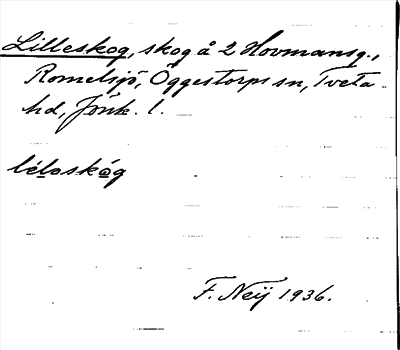 Lilleskog, skog å 2 Hovmansg.,
Romelsjö, Öggestorps sn, Tveta
hd, Jönk. l.
léloskóg
F. Neij 1936.